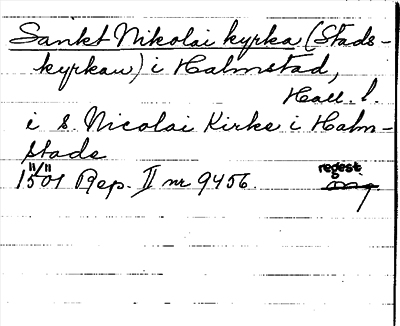 Sankt Nikolai kyrka (Stads-
kyrkan) i Halmstad,
Hall. l.
i S. Nicolai Kirke i Halm-
stade
1501 11/11 Rep. II nr 9456. regest